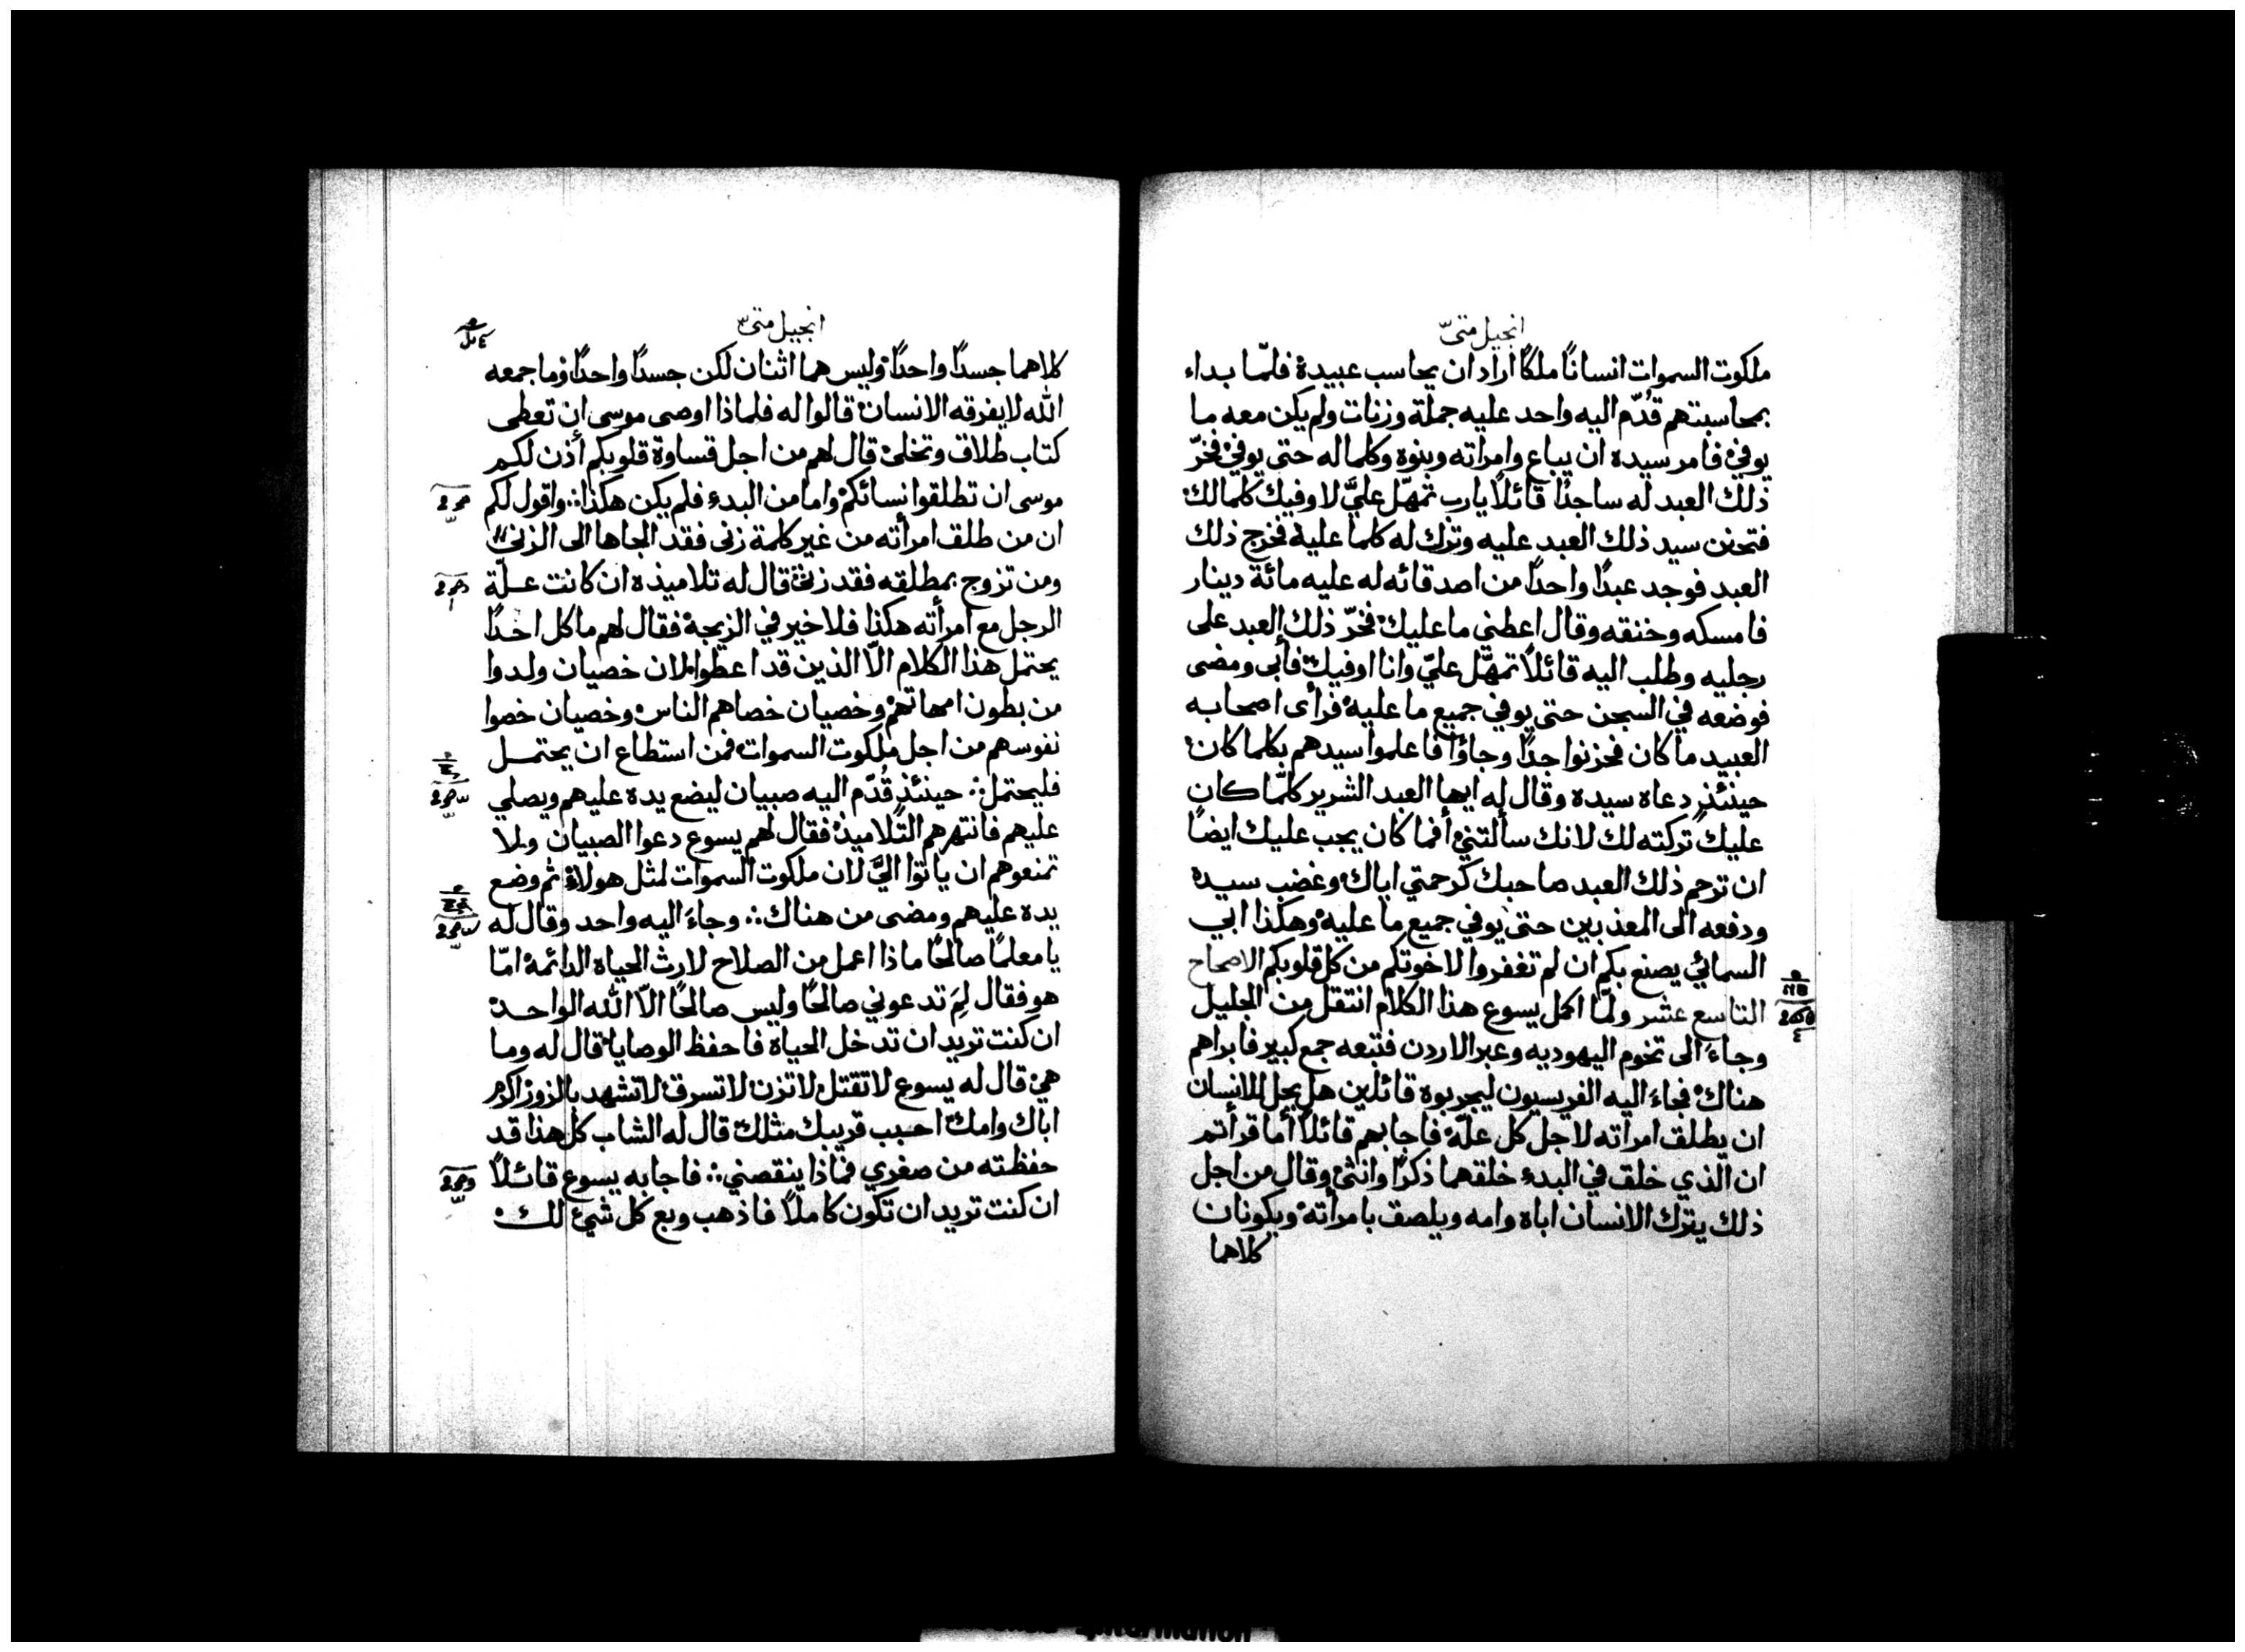 انجيل متىّ
ملكوت السموات انسانًا ملكًا اراد ان يحاسب عبيدة فلمّا بداء
بمحاسبتهم قُدّم اليه واحد عليه جملة وزنات ولم يكن معه ما
يوفي فامر سيده ان يباع وامراته وبنوه وكلما له حتى يوفي فخرّ
ذلك العبد له ساجدًا قائلًا يارب تمهّل عليَّ لاوفيك كلمالك
فتحنن سيد ذلك العبد عليه وترك له كلما عليه فخرج ذلك
العبد فوجد عبدًا واحدًا من اصدقائه له عليه مائة دينار
فامسكه وخنقه وقال اعطني ما عليك فخرّ ذلك العبد على
رجليه وطلب اليه قائلًا تمهّل عليّ وانا اوفيك فأبى ومضى
فوضعه في السجن حتى يوفي جميع ما عليه فرأى اصحابه
العبيد ما كان فحزنوا جدًا وجاؤا فاعلموا سيدهم بكلما كان
حينئذٍ دعاه سيده وقال له ايها العبد الشرير كلمّا كان
عليك تركته لك لانك سألتني أفما كان يجب عليك ايضًا
ان ترحم ذلك العبد صاحبك كرحمتي اياك وغضب سيده
ودفعه الى المعذبين حتى يوفي جميع ما عليه وهكذا ابي
السمائي يصنع بكم ان لم تغفروا لاخوتكم من كل قلوبكم الاصحاح
التاسع عشر ولمّا اكمل يسوع هذا الكلام انتقل من الجليل
وجاءَ الى تخوم اليهوديه وعبر الاردن فتبعه جمع كبير فابراهم
هناك فجاءَ اليه الفريسيون ليجربوه قائلين هل يحل للانسان
ان يطلق امراته لاجل كل علّة فاجابهم قائلًا أما قرأتم
ان الذي خلق في البدء خلقهما ذكرًا وانثى وقال من اجل
ذلك يترك الانسان اباه وامه ويلصق بامرأته ويكونان
كلاهما
انجيل متىّ
كلاهما جسدًا واحدًا وليس هما اثنان لكن جسدًا واحدًا وما جمعه
الله لا يفرقه الانسان قالوا له فلماذا اوصى موسى ان تعطى
كتاب طلاق وتخلى قال لهم من اجل قساوة قلوبكم أذن لكم
موسى ان تطلقوا نسائكم واما من البدء فلم يكن هكذا ∴ واقول لكم
ان من طلق امرأته من غير كلمة زنى فقد الجاها الى الزنى
ومن تزوج بمطلقه فقد زنى قال له تلاميذه ان كانت علّة
الرجل مع امرأته هكذا فلا خير في الزيجة فقال لهم ما كل احدًا
يحتمل هذا الكلام الّا الذين قد اعطوا لان خصيان ولدوا
من بطون امهاتهم وخصيان خصاهم الناس وخصيان خصوا
نفوسهم من اجل ملكوت السموات فمن استطاع ان يحتمل
فليحتمل ∴ حينئذٍ قُدّم اليه صبيان ليضع يده عليهم ويصلي
عليهم فانتهرهم التلاميذ فقال لهم يسوع دعوا الصبيان ولا
تمنعوهم ان ياتوا اليَّ لان ملكوت السموات لمثل هولاء ثم وضع
يده عليهم ومضى من هناك ∴ وجاءَ اليه واحد وقال له
يا معلمًا صالحًا ماذا اعمل من الصلاح لارث الحياه الدائمة امّا
هو فقال لِمَ تدعوني صالحًا وليس صالحًا الّا الله الواحد
ان كنت تريد ان تدخل الحياة فاحفظ الوصايا قال له وما
هي قال له يسوع لا تقتل لا تزن لا تسرق لا تشهد بالزور اكرم
اباك وامك احبب قريبك مثلك قال له الشاب كل هذا قد
حفظته من صغري فماذا ينقصني ∴ فاجابه يسوع قائلًا
ان كنت تريد ان تكون كاملًا فاذهب وبع كل شيء لك